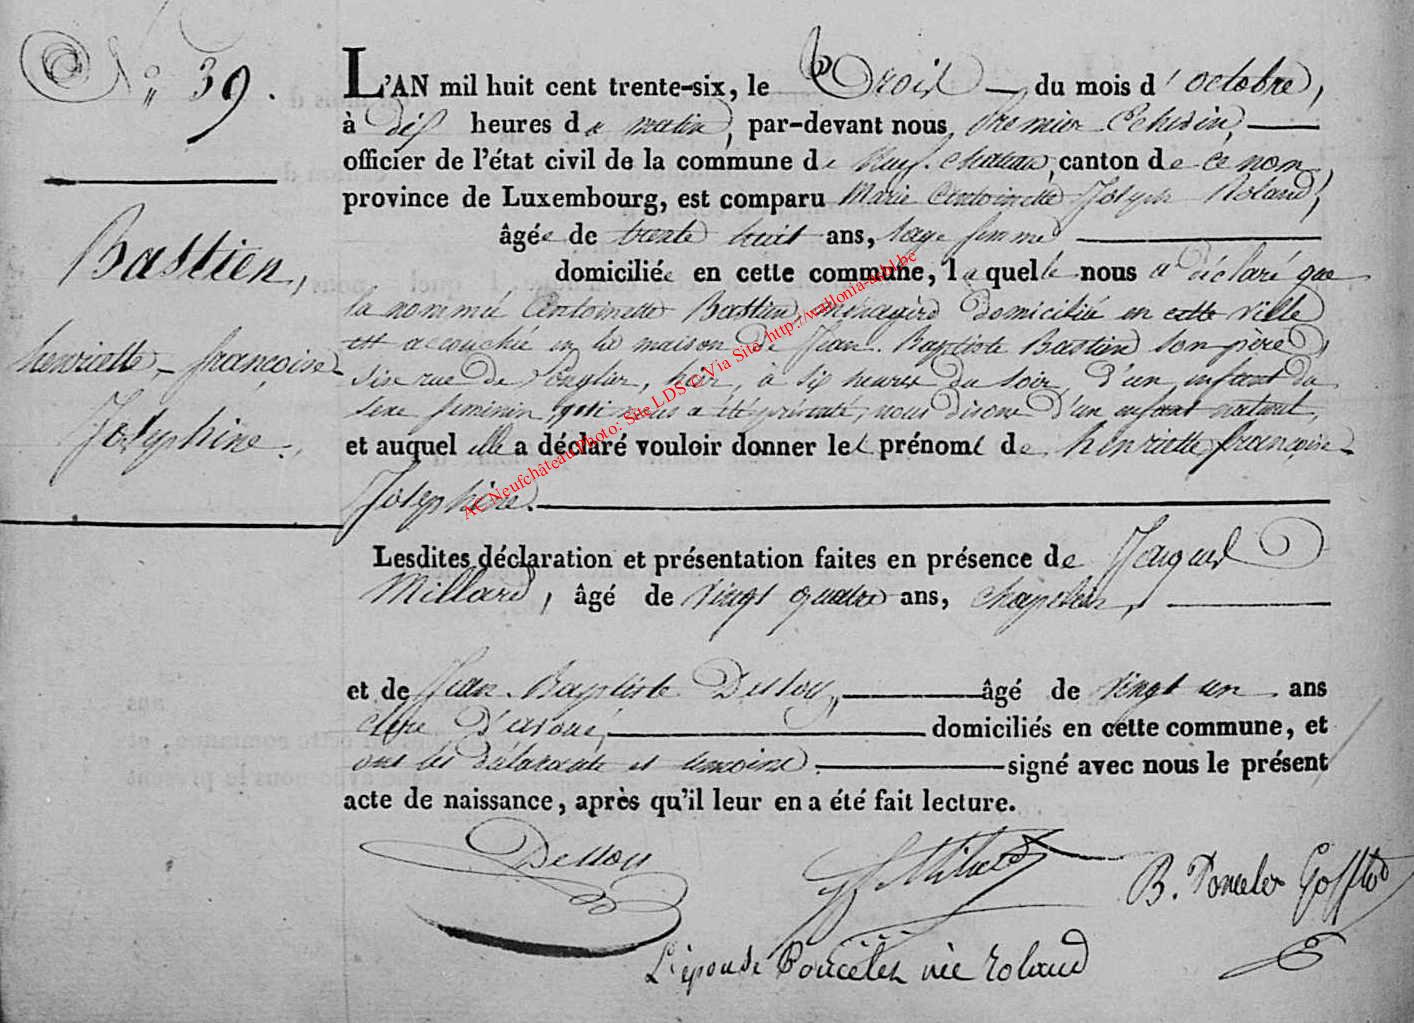 N° 39.
Bastien,
henriette - françoise -
Josephine.
L'AN mil huit cent trente-six, le Trois du mois d'octobre,
à dix heures du matin, par-devant nous, Premier Echevin,
officier de l'état civil de la commune de Neufchateau, canton de ce nom,
province de Luxembourg, est comparu Marie Antoinette Joseph Roland,
âgée de trente huit ans, sage femme
domiciliée en cette commune, laquelle nous a déclaré que
la nommée Antoinette Bastien, ménagère domiciliée en cette ville
est accouchée en la maison de Jean-Baptiste Bastien son père
sise rue de, hier, à six heures du soir, d'un enfant du
sexe feminin, qui nous a été présenté, nous disons d'un enfant naturel,
et auquel elle a déclaré vouloir donner les prénoms de henriette françoise -
Josephine.
Lesdites déclaration et présentation faites en présence de Jacques
Millard, âgé de vingt quatre ans, chapelier,
et de Jean-Baptiste Dessoy, âgé de vingt un ans
clerc d'avoué, domiciliés en cette commune, et
ont les déclarante et témoins signé avec nous le présent
acte de naissance, après qu'il leur en a été fait lecture.
Dessoy
B. Poncelet
L'épouse Poncelet née roland
AC Neufchâteau Photo: Site LDS © Via Site http://wallonia-asbl.be